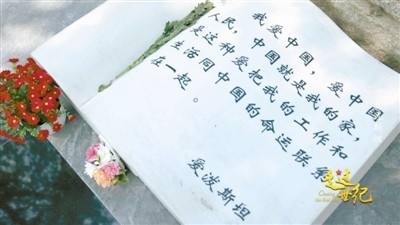 我爱中国，爱中国
人民，中国就是我的家，
是这种爱把我的工作和
生活同中国的命运联系
在一起。
爱泼斯坦
世纪